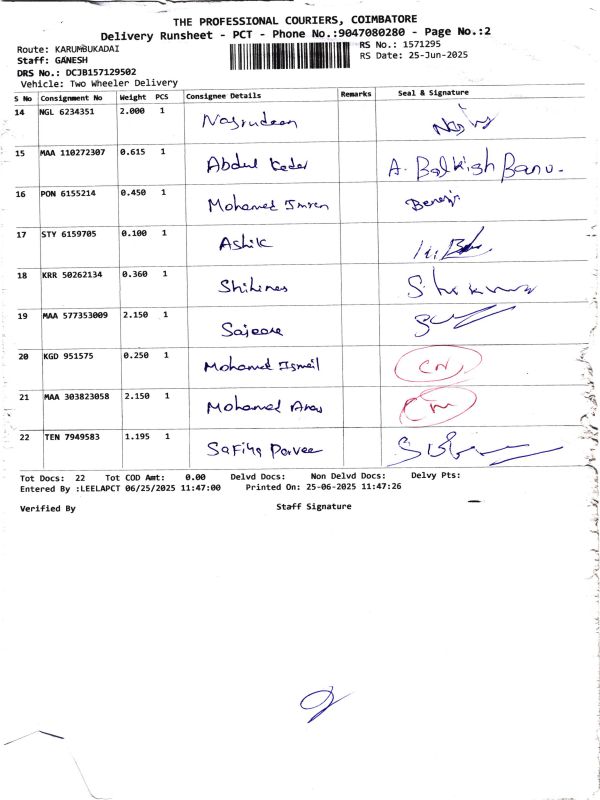 THE PROFESSIONAL COURIERS, COIMBATORE
Delivery Runsheet - PCT - Phone No.:9047080280 - Page No.:2
Route: KARUMBUKADAI
RS No.: 1571295
Staff: GANESH
RS Date: 25-Jun-2025
DRS No.: DCJB157129502
Vehicle: Two Wheeler Delivery
S No Consignment No Weight PCS Consignee Details Remarks Seal & Signature
14 NGL 6234351 2.000 1 Nasrudeen
15 MAA 110272307 0.615 1 Abdul Kader A. Balkish Banu.
16 PON 6155214 0.450 1 Mohamed Imran Benazir
17 STY 6159705 0.100 1 Ashik
18 KRR 50262134 0.360 1
19 MAA 577353009 2.150 1
20 KGD 951575 0.250 1 Mohamed Ismail
21 MAA 303823058 2.150 1 Mohamed
22 TEN 7949583 1.195 1 Safiya Parvee
Tot Docs: 22 Tot COD Amt: 0.00 Delvd Docs: Non Delvd Docs: Delvy Pts:
Entered By :LEELAPCT 06/25/2025 11:47:00 Printed On: 25-06-2025 11:47:26
Verified By Staff Signature